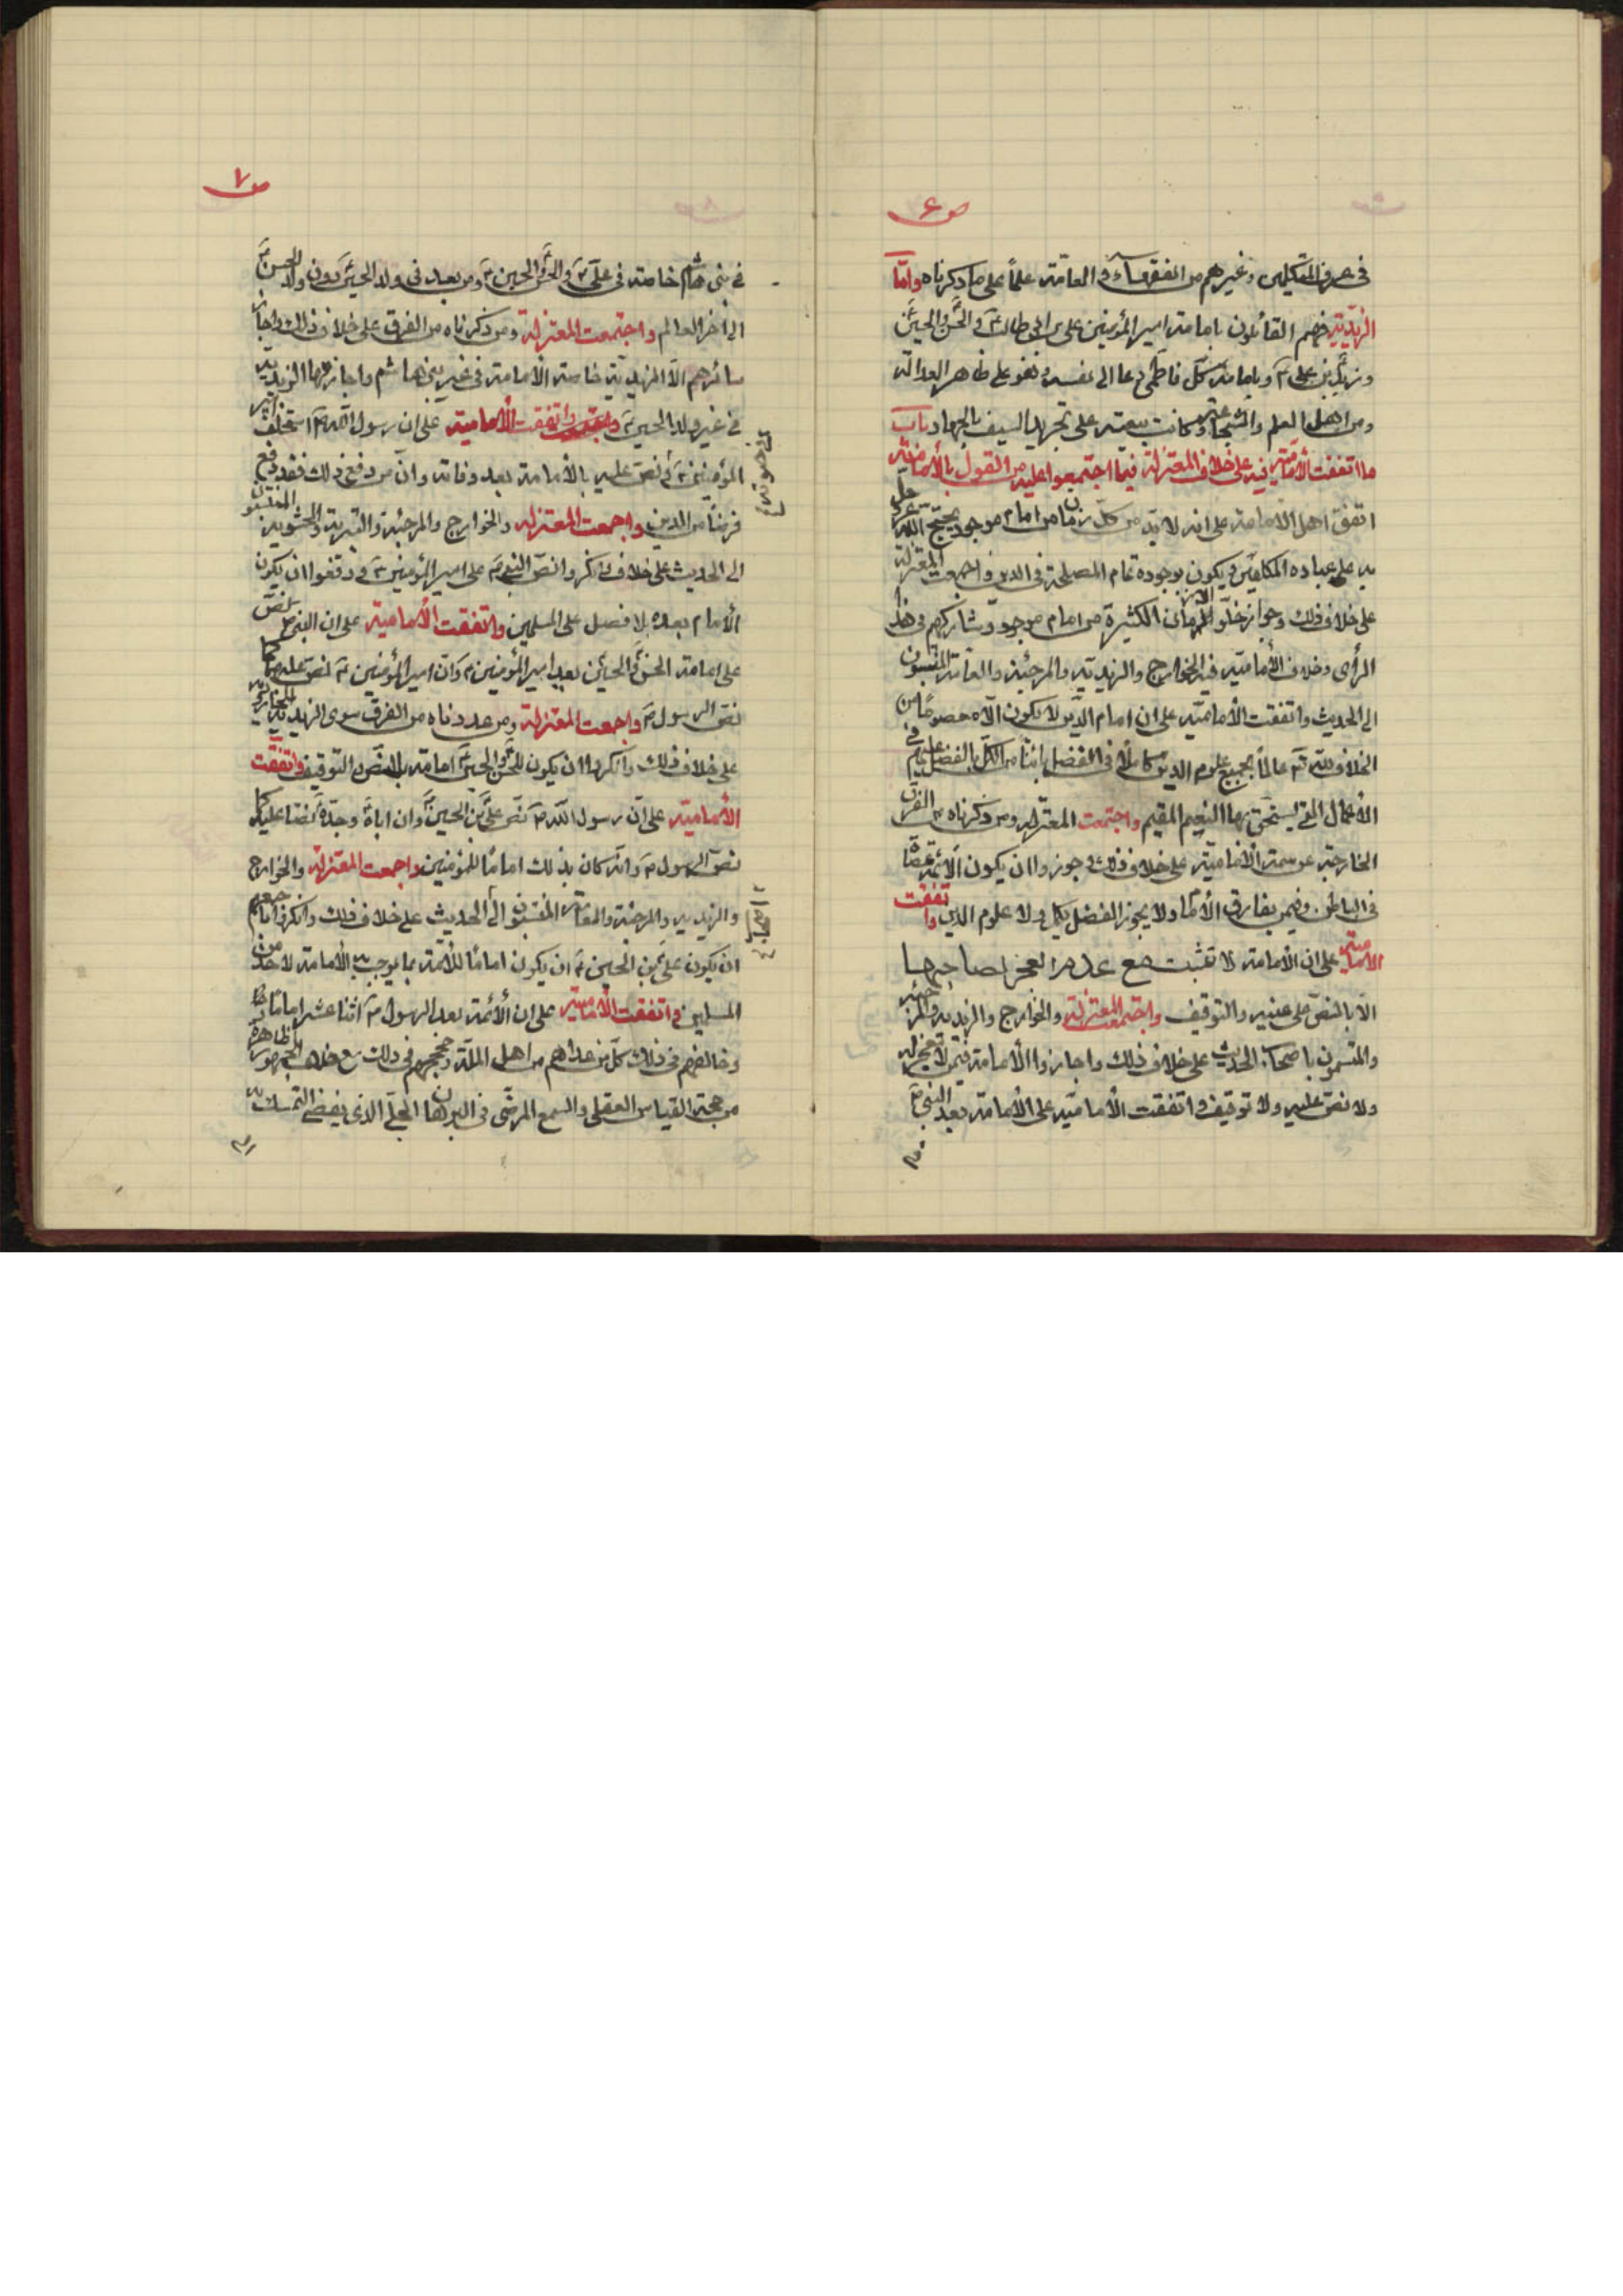 ص ۶
في عرف المتكلمين وغيرهم من الفقهاء و العامّة علماً على من ذكرناه وامّا
الزيديّة فهم القائلون بامامة امير المؤمنين على بن ابى طالب ع و الحسن و الحسين ع
و زيد بن على ع و بامامة كل فاطمى دعا الى نفسه و هو على ظاهر العدالة
و من اهل العلم و الشجاعة و كانت بيعته على تجريد السيف بالجهاد باب
ما اتفقت الأمامية فيه على خلاف المعتزلة فيما اجتمعوا عليه من القول بالأمامة
اتفق اهل الأمامة على انه لا بدّ من كلّ زمان من امام موجود يحتج الله عز و جل
به على عباده المكلفين و يكون بوجوده تمام المصلحة فى الدين و اجمعت المعتزلة
على خلاف ذلك و جواز خلّو الازمان الكثيرة من امام موجود و شاركهم فى هذا
الرأى و خلاف الأمامية فيه الخوارج و الزيدية و المرجئة و العامة المنتسبون
الى الحديث و اتفقت الأمامية على ان امام الدّين لا يكون الّا معصوماً من
الخلاف لله تع عالماً بجميع علوم الدين كاملاً فى الفضل بائناً من الكل بالفضل عليهم في
الأعمال التى يستحق بها النعيم المقيم و اجتمعت المعتزلة و من ذكرناه من الفرق
الخارجة عن سمة الأمامية على خلاف ذلك و جوزوا ان يكون الأئمة عصاة
فى الباطن و فيمن يفارق الآثام و لا يجوز الفضل بكل و لا علوم الدين و اتفقت
الأمامية على ان الأمامة لا تثبت مع عدم المعجز لصاحبها
الّا بالنصّ على عينيه و التوقيف و اجتمعت المعتزلة و الخوارج و الزيدية و المرجئة
و المتسمون باصحاب الحديث على خلاف ذلك و اجازوا الأمامة فيمن لا معجز له
و لا نصّ عليه و لا توقيف و اتفقت الأمامية على الأمامة بعد النبى ص
ص ۷
فى بنى هاشم خاصة فى علىّ ع و الحسن و الحسين ع و من بعد فى ولد الحسين ع دون ولد الحسن ع
الى اخر العالم و اجتمعت المعتزلة و من ذكرناه من الفرق على خلاف ذلك و اجاز
سائرهم الّا الزيديّة خاصة الأمامة فى غير بنى هاشم و اجازها الزيدية
فى غير ولد الحسين ع و اتفقت الأمامية على ان رسول الله ص استخلف امير
المؤمنين ع و نص عليه بالأمامة بعد وفاته و انّ من دفع ذلك فقد دفع
فرضاً من الدين و اجمعت المعتزلة و الخوارج و المرجئة و البترية و الحشوية المنتسبون
الى الحديث على خلاف ذلك و انكروا نصّ النبى ص على امير المؤمنين ع و دفعوا ان يكون
الأمام بعده بلا فصل على المسلمين و اتفقت الأمامية على ان النبى ص نصّ
على امامة الحسن و الحسين بعد امير المؤمنين ع و انّ امير المؤمنين ع نصّ عليهما كما
نصّ الرسول ص و اجمعت المعتزلة و من عددناه من الفرق سوى الزيدية الجارودية
على خلاف ذلك و انكروا ان يكون للحسن و الحسين ع امامة بالنصّ و التوقيف و اتفقت
الأمامية على انّ رسول الله ص نصّ على علىّ بن الحسين ع و ان اباه و جدّه نصّا عليه كما
نصّ الرسول ص و انّه كان بذلك اماماً للمؤمنين و اجمعت المعتزلة و الخوارج
و الزيدية و المرجئة و المنتسبون الى الحديث على خلاف ذلك و انكروا باجمعهم
ان يكون علىّ بن الحسين ع ان يكون اماماً للأمّة بما يوجب به الأمامة لأحد من
المسلمين و اتفقت الأمامية على ان الأئمة بعد الرسول ص اثنا عشر اماماً
و خالفهم فى ذلك كلّ من عداهم من اهل الملّة و حججهم فى ذلك مع خلاف الجمهور ظاهرة
من جهة القياس العقلى و السمع المرضى فى البرهان الجلّى الذى يفضى التمسك به